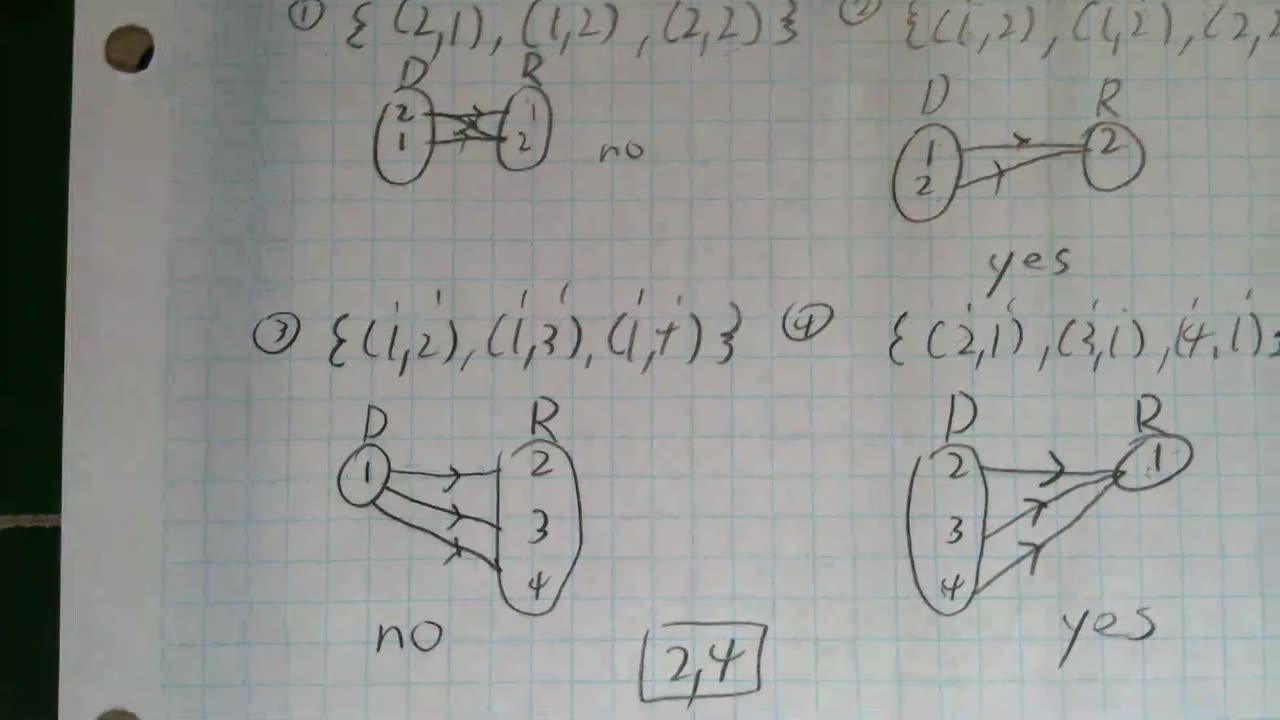 ① {(2,1), (1,2), (2,2)}
② {(1,2), (1,2), (2,2
D R
2 1
1 2
no
D R
1 2
2
yes
③ {(1,2), (1,3), (1,4)}
④ {(2,1), (3,1), (4,1)}
D R
1 2
3
4
no
D R
2 1
3
4
yes
2,4